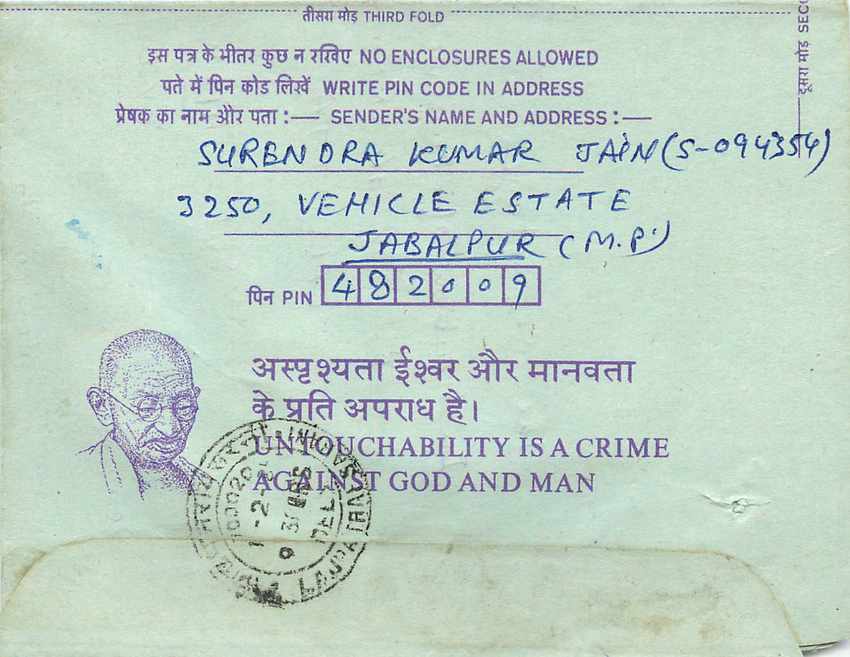 तीसरा मोड़ THIRD FOLD
दूसरा मोड़ SECO
इस पत्र के भीतर कुछ न रखिए NO ENCLOSURES ALLOWED
पते में पिन कोड लिखें WRITE PIN CODE IN ADDRESS
प्रेषक का नाम और पता :— SENDER'S NAME AND ADDRESS :—
SURENDRA KUMAR JAIN (S-094354)
3250, VEHICLE ESTATE
JABALPUR (M.P.)
पिन PIN 482009
अस्पृश्यता ईश्वर और मानवता
के प्रति अपराध है।
UNTOUCHABILITY IS A CRIME
AGAINST GOD AND MAN